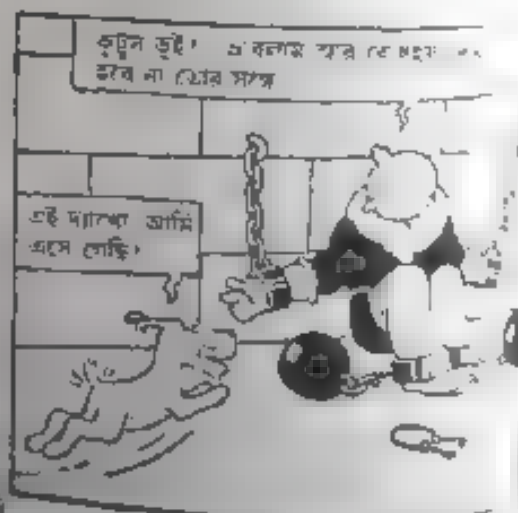 কুট্টুস তুই!
হবে না তোর সঙ্গে
এই দ্যাখো আমি
এসে গেছি!